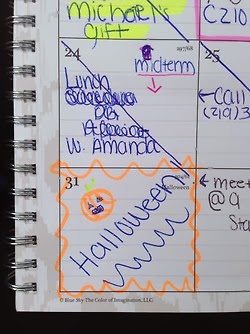 michael's
gift
24
297/68
25
midterm
Lunch
W. Amanda
← Call
(219)3
31
Halloween
← meet
@ 9
Sta
Halloween
© Blue Sky The Color of Imagination, LLC